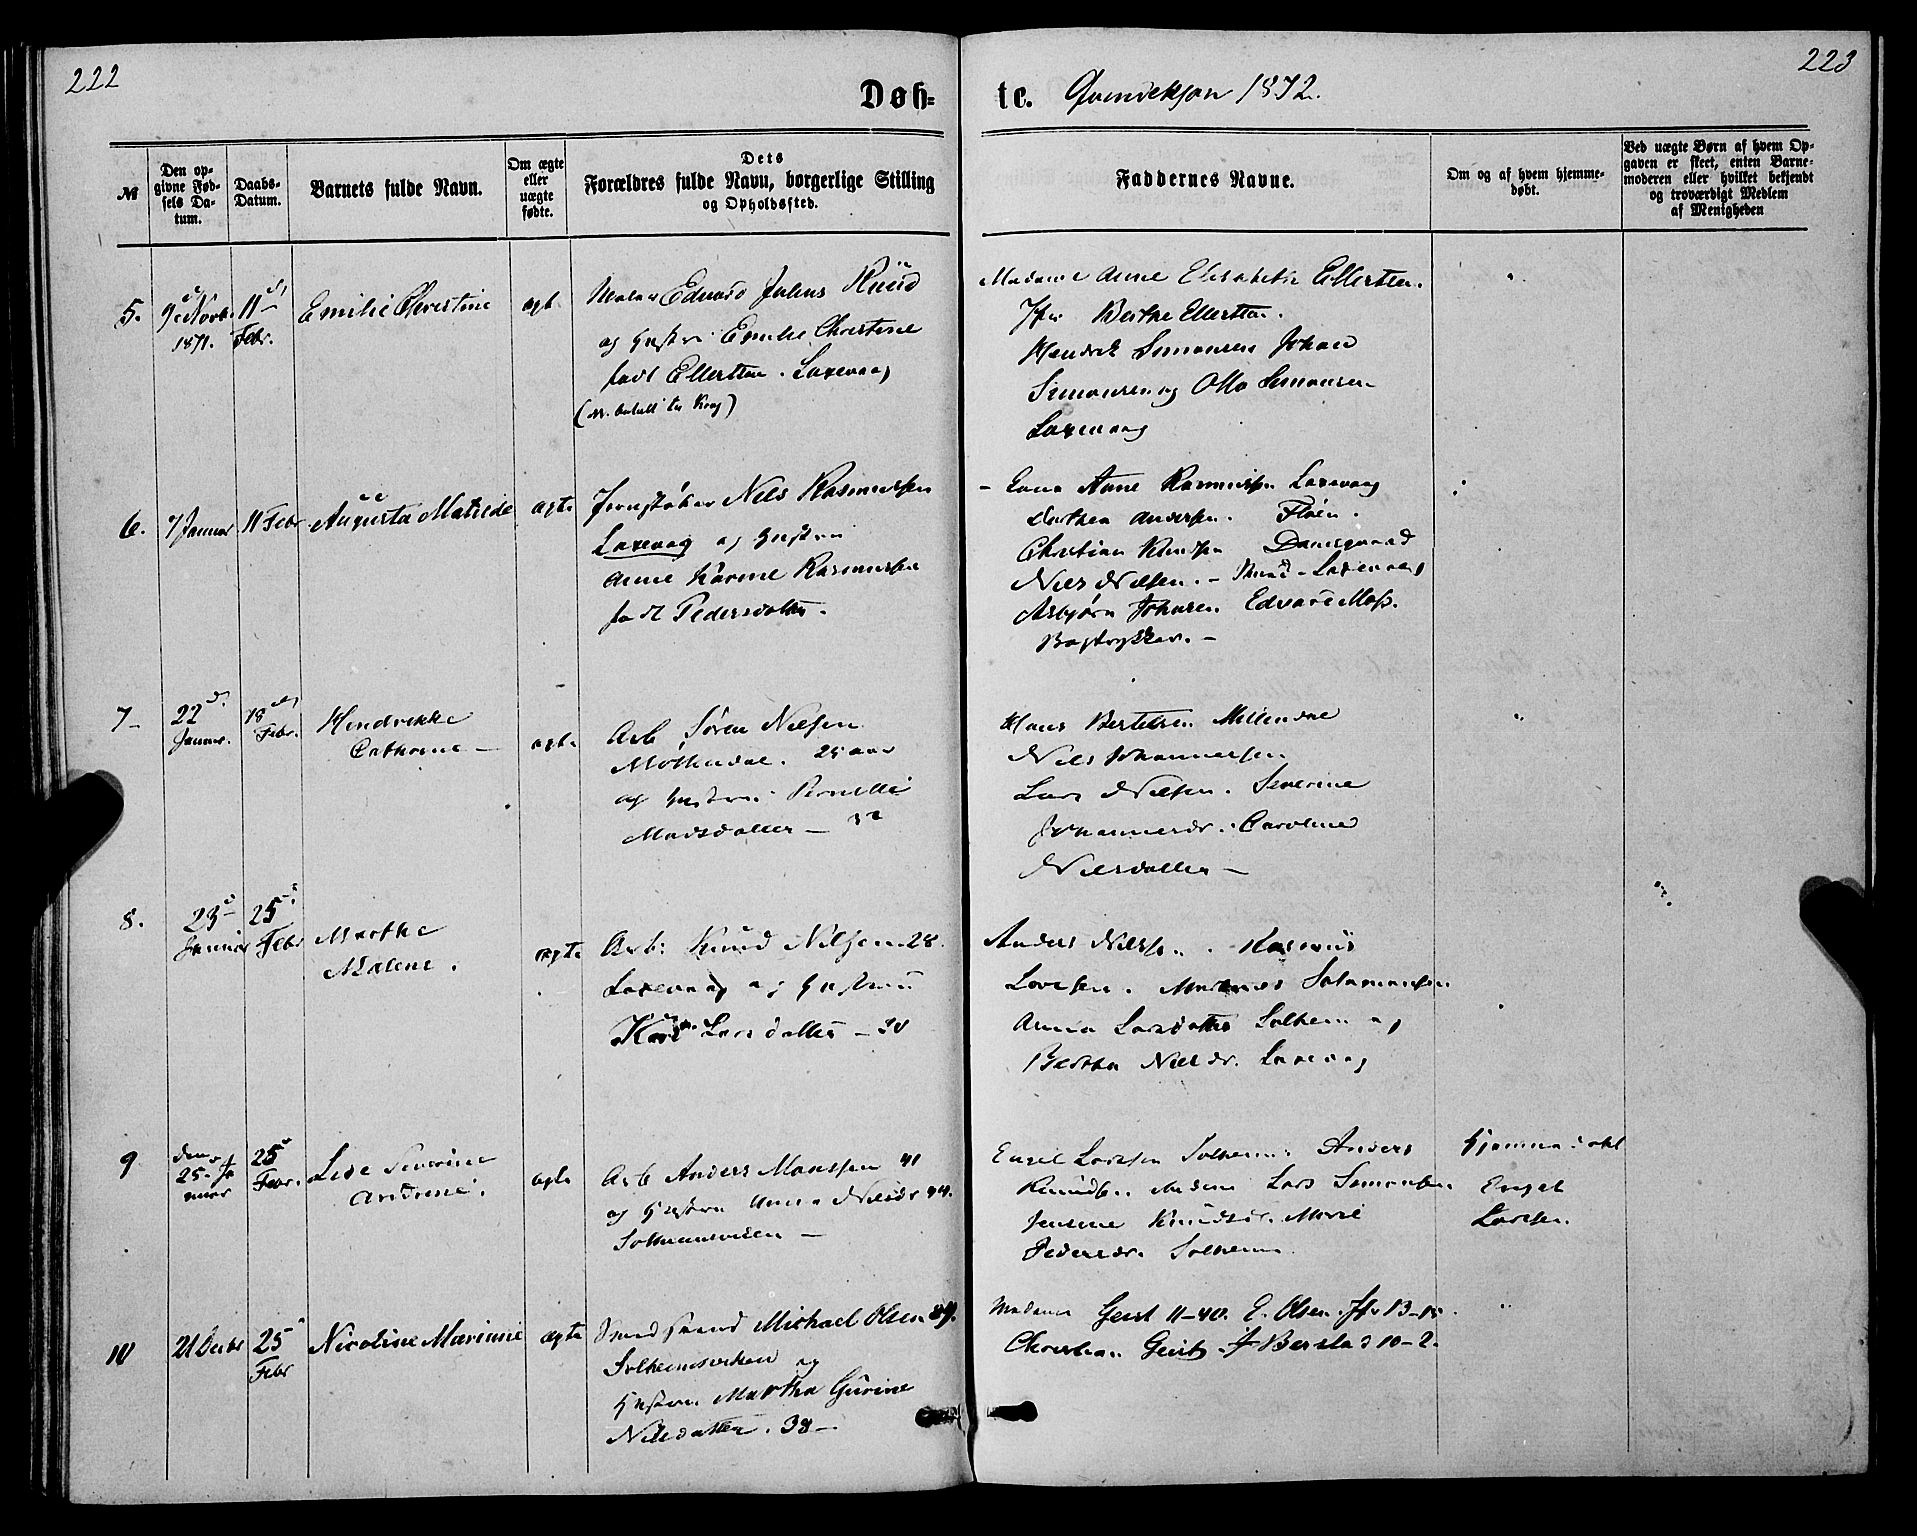 222
223
Døb-
te.
Qvindekjøn 1872.
№
Den op-
givne Fød-
sels Da-
tum.
Daabs-
Datum.
Barnets fulde Navn.
Om ægte
eller
uægte
fødte.
Dets
Forældres fulde Navn, borgerlige Stilling
og Opholdssted.
Faddernes Navne.
Om og af hvem hjemme-
døbt.
Ved uægte Børn af hvem Op-
gaven er skeet, enten Barne-
moderen eller hvilket bekjendt
og troværdigt Medlem
af Menigheden
5.
1871.
11
Febr.
Emilie Christine
ægt.
Maler Edvard Julius Ruud
og Hustru Emilie Christine
født Ellertsen. Laxevaag
Madame Anne Elisabeth Ellertsen.
Jfr Berthe Ellertsen.
Hendrik Simonsen Johan
Simonsen og Otto Simonsen
Laxevaag
6.
7 Januar
11 Febr
Augusta Matilde
ægte
Jernstøber Nels Rasmussen
Laxevaag og Hustru
Anne Karine Rasmussen
født Pedersdotter.
Anne Rasmussen Laxevaag
Dorthea Andersen. Fløen.
Christian Knudsen Damsgaard
Niels Nilsen. Laxevaag
Asbjørn Johnsen Edvard Moss.
Bogtrykker.
7
22
Januar.
18
Febr.
Hendrikke
Cathrine
ægte
Arb Søren Nilsen
Møllendal. 25 aar
og Hustru Pernille
Madsdatter
Hans Bertelsen Møllendal
Niels Johannessen
Lars Nilsen. Severine
Johannesdr. Caroline
Nilsdatter
8.
23
Januar
25
Febr
Marthe
Malene.
ægte
Arb: Knud Nilsen 28.
Laxevaag og Hustru
Larsdatter
Anders Nilsen. Rasmus
Larsen. Salamonsen
Anna Larsdatter Solheim og
Berthe Nilsdr. Laxevaag
9
den
25. Ja
nuar
25
Febr.
Severine
Andrine.
ægte
Arb Anders Monssen 41
og Hustru Anna Nilsdr 44.
Solheimsviken
Engel Larsen Solheim. Anders
Knudsen Lars Simonsen
Jensine Knudsdr. Marie
Pedersdr. Solheim
Hjemmedøbt
Engel
Larsen.
10
21 Decbr
25
Febr
Nicoline Marinne
ægte
Michael Olsen
Solheimsviken og
Hustru Martha Gurine
Nilsdatter. 38
Madame Geist 11-40. E. Olsen. Jfr
Christian Geist. Berstad 10-2.